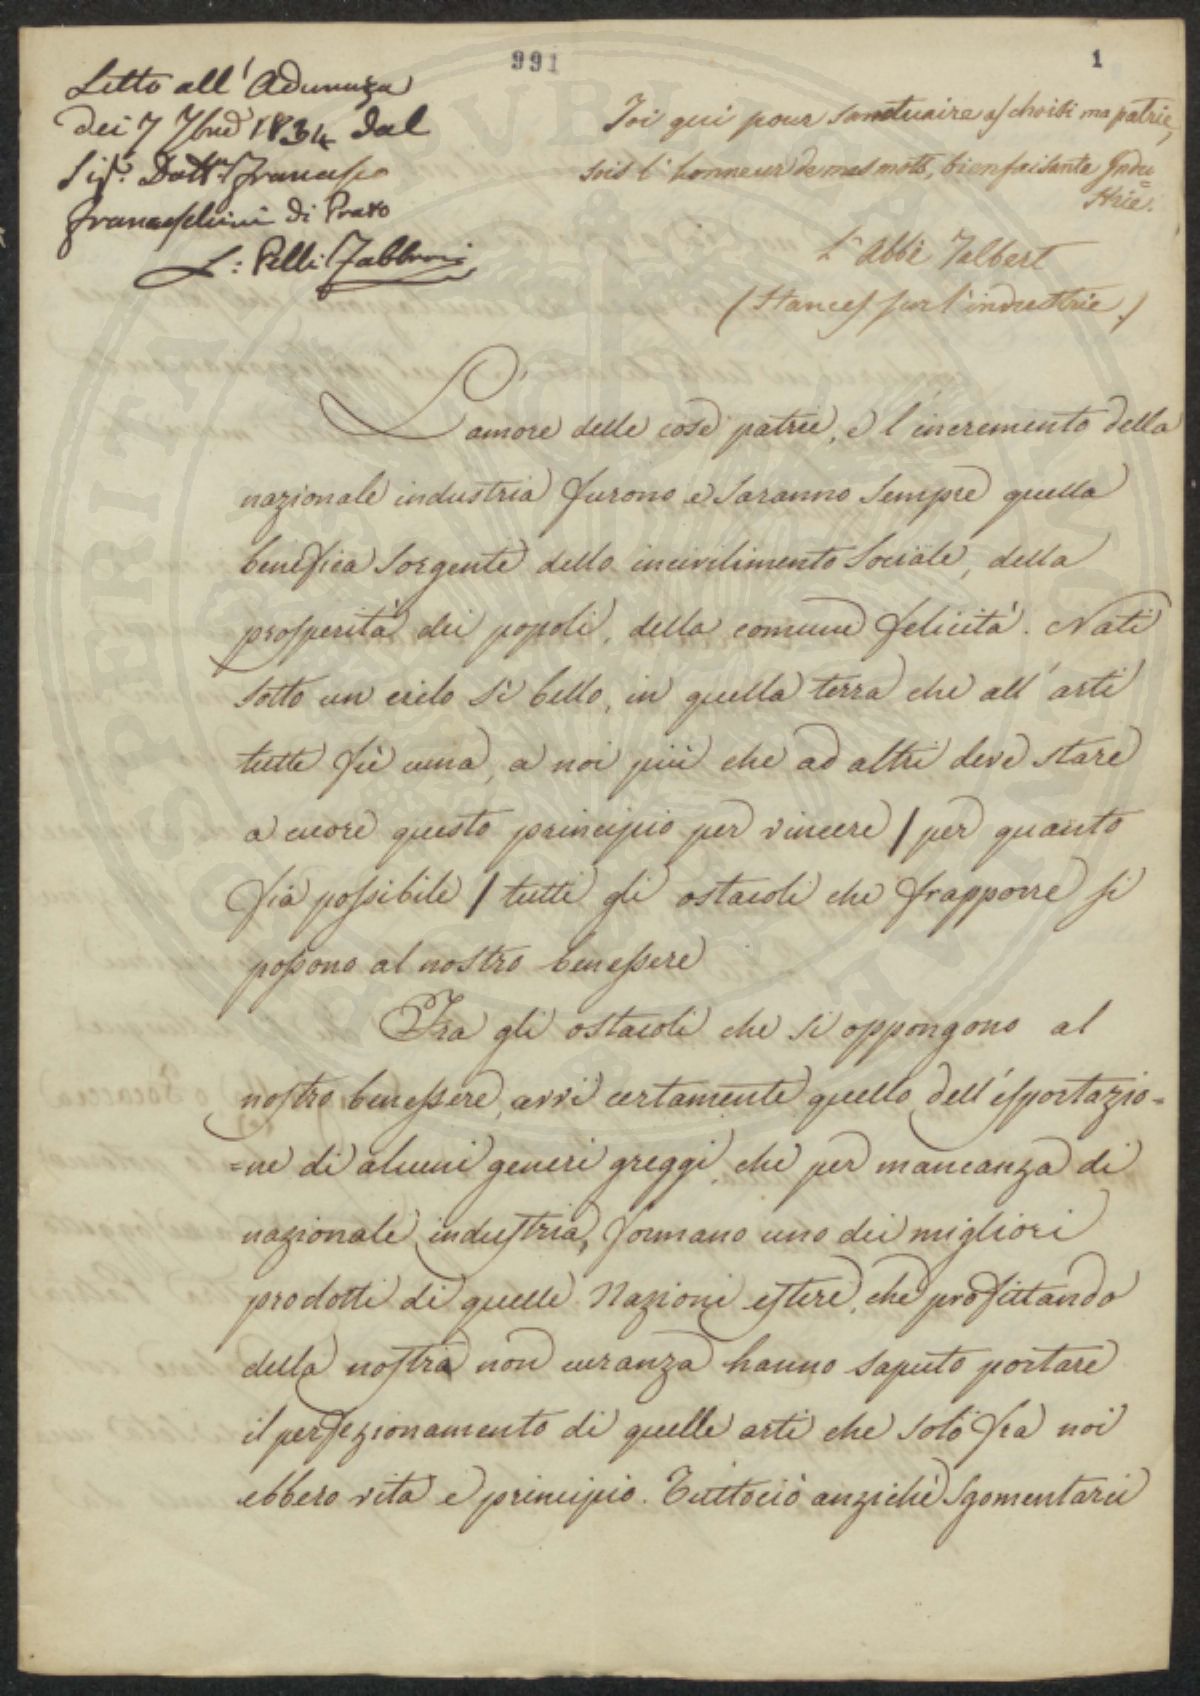 991
1
Letto all' Adunanza
dei 7 7bre 1834 dal
Sigr. Dottr Francesco
Franceschini di Prato
L: Pelli Fabbroni
Toi qui pour sanctuaire as choisi ma patrie,
sois l'honneur de mes mots, bienfaisante Indu=
strie.
L'Abbé Talbert
(Stances sur l'industrie.)
L'amore delle cose patrie, e l'incremento della
nazionale industria furono e saranno sempre quella
benefica sorgente dello incivilimento sociale, della
prosperità dei popoli, della comune felicità. Nati
sotto un cielo sì bello, in quella terra che all'arti
tutte fù cuna, a noi più che ad altri deve stare
a cuore questo principio per vincere / per quanto
fia possibile / tutti gli ostacoli che frapporre si
possono al nostro benessere
Fra gli ostacoli che si oppongono al
nostro benessere, avvi certamente quello dell'esportazio=
=ne di alcuni generi greggi, che per mancanza di
nazionale industria, formano uno dei migliori
prodotti di quelle Nazioni estere, che profittando
della nostra non curanza hanno saputo portare
il perfezionamento di quelle arti che solo fra noi
ebbero vita e principio. Tuttociò anzichè sgomentarci
PROSPERITATI PUBLICAE